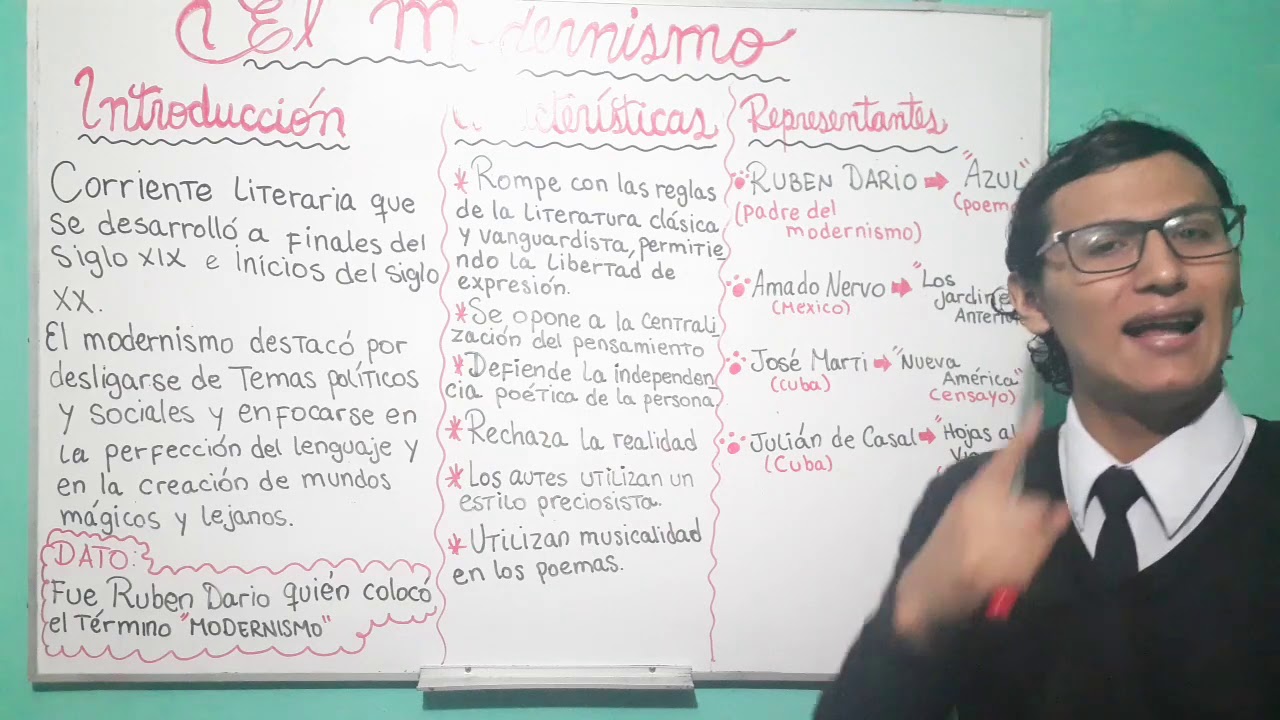 El Modernismo
Introducción
Corriente Literaria que
se desarrolló a finales del
Siglo XIX e inicios del siglo
XX.
El modernismo destacó por
desligarse de Temas políticos
y sociales y enfocarse en
la perfección del lenguaje y
en la creación de mundos
mágicos y lejanos.
DATO:
Fue Ruben Dario quién colocó
el Término "MODERNISMO"
Características
* Rompe con las reglas
de la Literatura clásica
y vanguardista, permitie
ndo la Libertad de
expresión.
* Se opone a la centrali
zación del pensamiento
* Defiende la independen
cia poética de la persona
* Rechaza la realidad
* Los autes utilizan un
estilo preciosista.
* Utilizan musicalidad
en los poemas.
Representantes
RUBEN DARIO ➡ "AZUL"
(padre del
modernismo)
Amado Nervo ➡ "Los
(Mexico)
José Marti ➡ "Nueva
América"
(Cuba)
Censayo)
Julián de Casal ➡ "Hojas al
(Cuba)